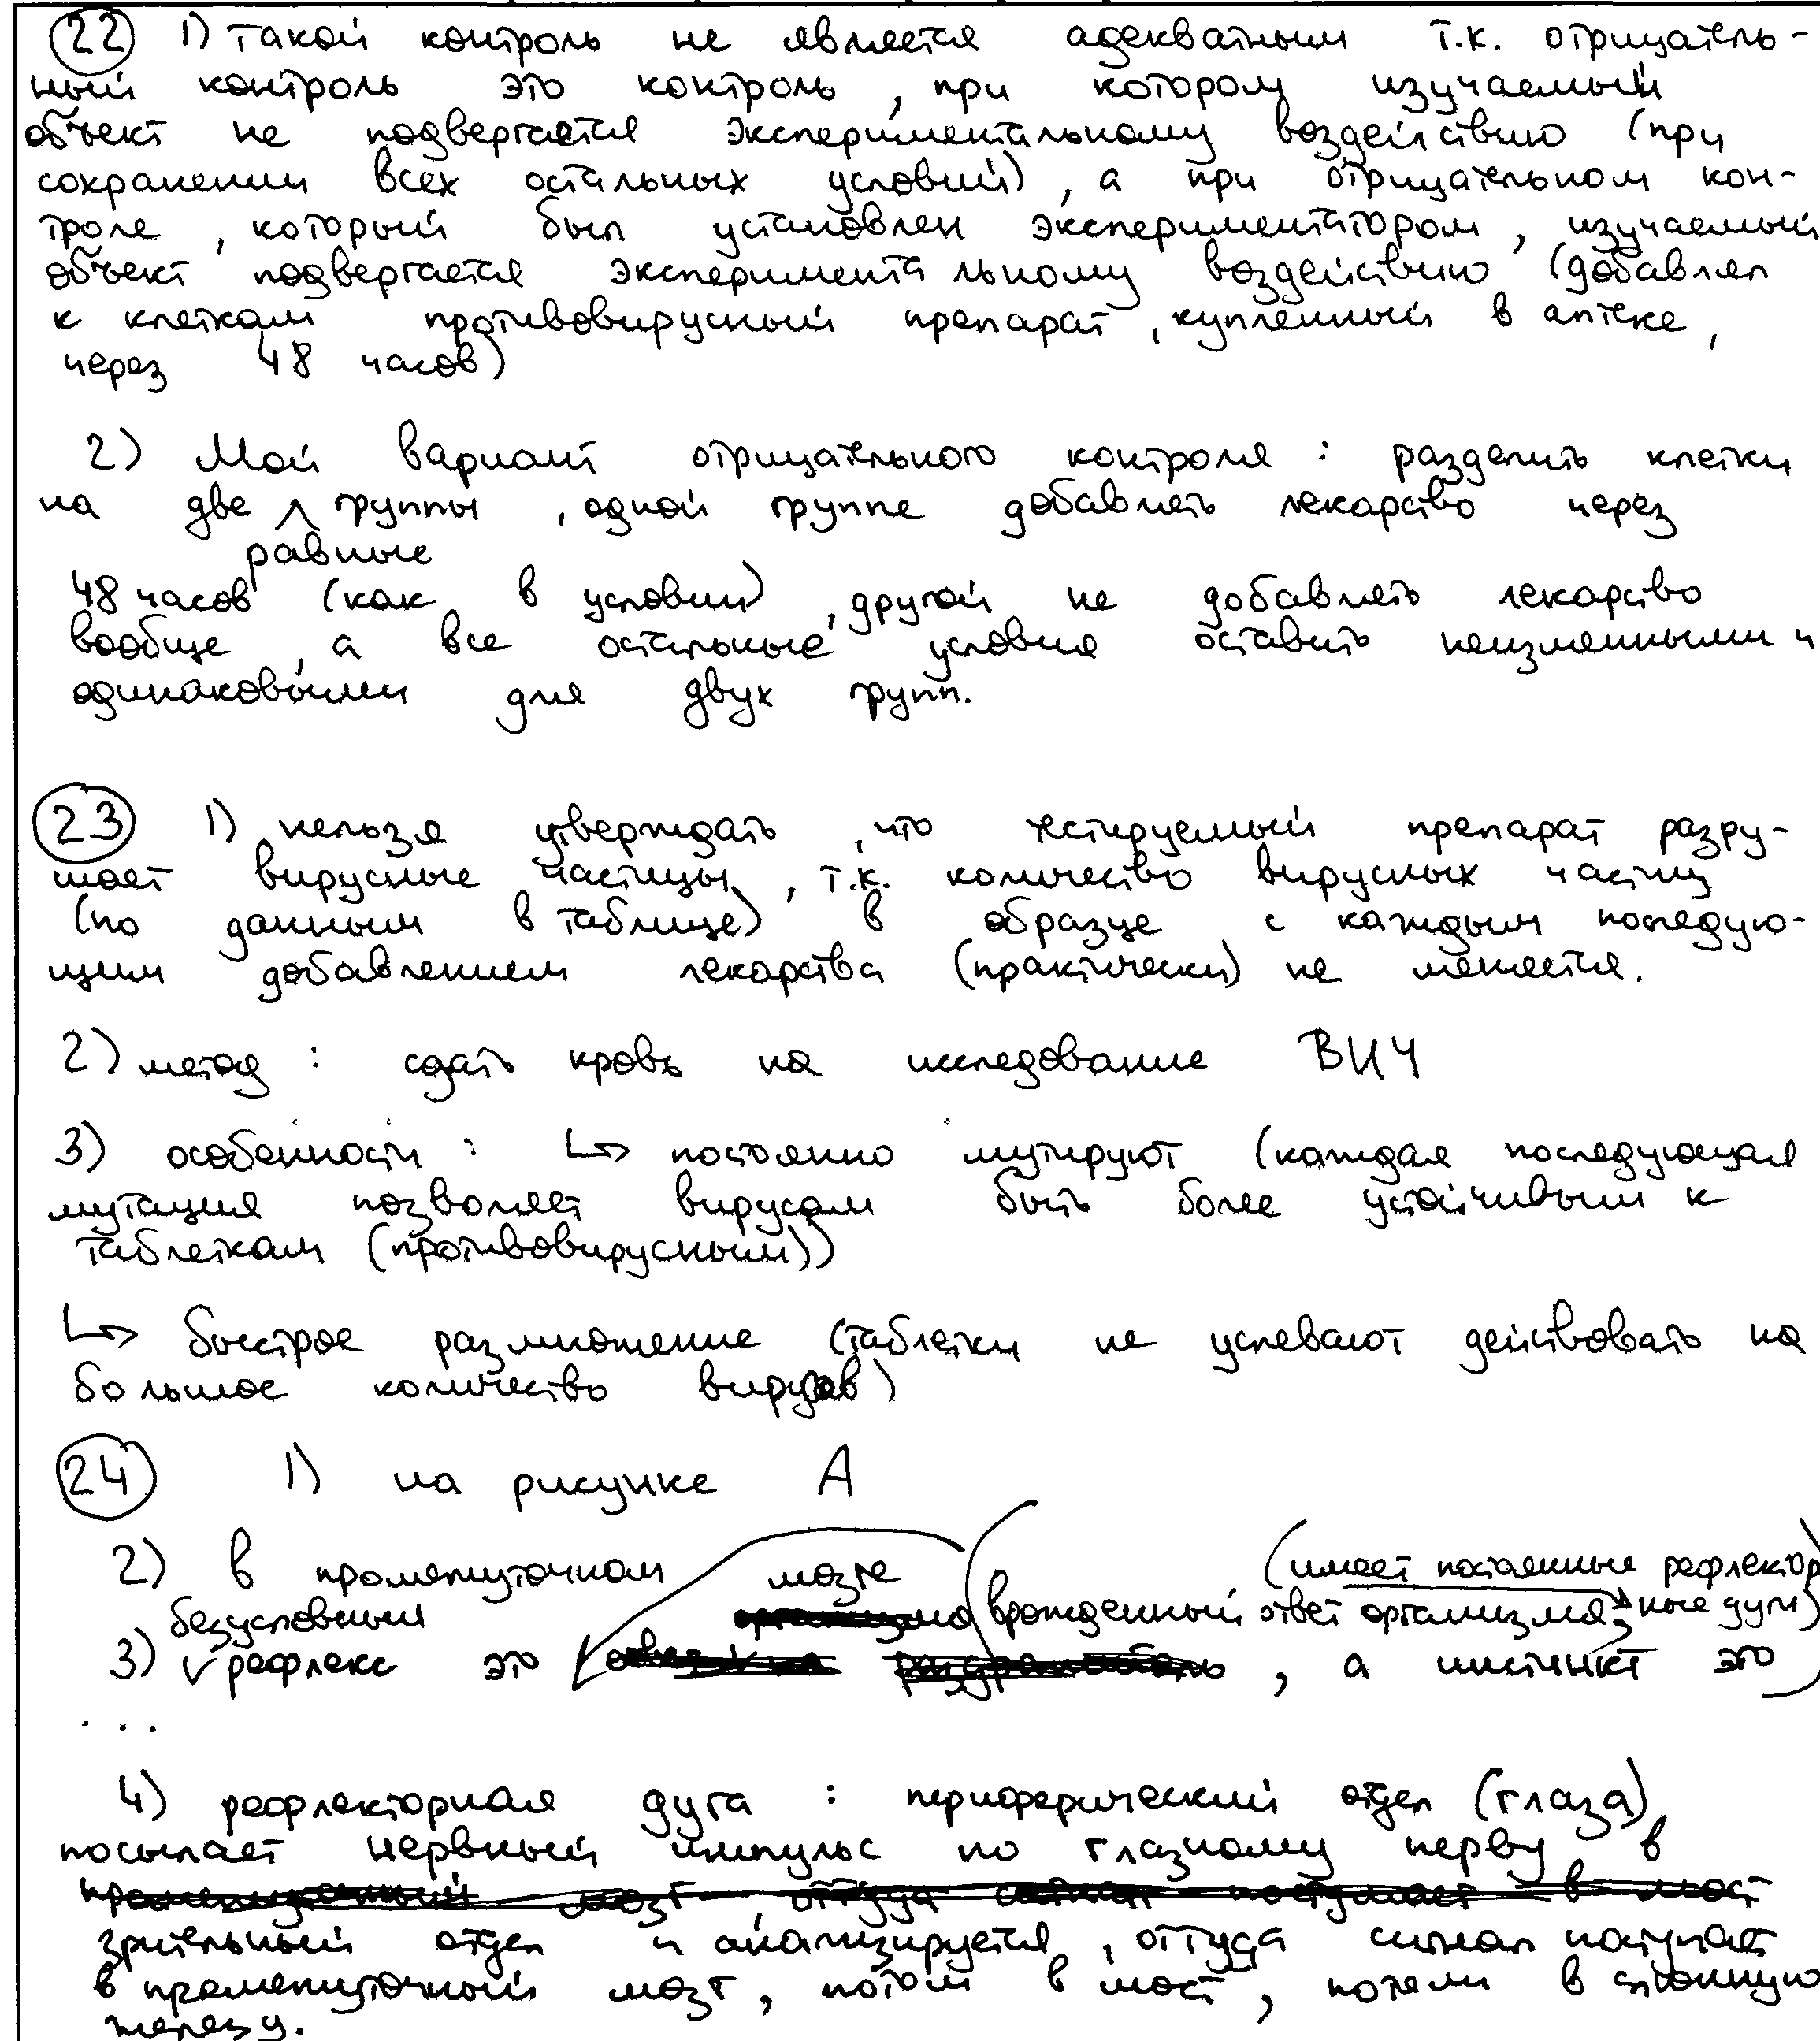 22 1) Такой контроль не является адекватным т.к. отрицатель-
ный контроль это контроль, при котором изучаемый
объект не подвергается экспериментальному воздействию (при
сохранении всех остальных условий), а при отрицательном кон-
троле, который был установлен экспериментатором, изучаемый
объект подвергается экспериментальному воздействию (добавлял
к клеткам противовирусный препарат, купленный в аптеке,
через 48 часов)
2) Мой вариант отрицательного контроля: разделить клетки
на две группы, одной группе добавлять лекарство через
равные
48 часов (как в условии), другой не добавлять лекарство
вообще, а все остальные условия оставить неизменными и
одинаковыми для двух групп.
23 1) нельзя утверждать, что тестируемый препарат разру-
шает вирусные частицы, т.к. количество вирусных частиц
(по данным в таблице) в образце с каждым последую-
щим добавлением лекарства (практически) не меняется.
2) метод: сдать кровь на исследование ВИЧ
3) особенности: ↳ постоянно мутируют (каждая последующая
мутация позволяет вирусам быть более устойчивым к
таблеткам (противовирусным))
↳ быстрое размножение (таблетки не успевают действовать на
большое количество вирусов)
24 1) на рисунке А
2) в промежуточном мозге (имеет постоянные рефлектор
безусловный врожденный ответ организма ные дуги)
3) рефлекс это , а инстинкт это
...
4) рефлекторная дуга: периферический отдел (глаза)
посылает нервный импульс по глазному нерву в
промежуточный мозг, оттуда сигнал поступает в мост
зрительный отдел и анализируется, оттуда сигнал поступает
в промежуточный мозг, потом в мост, потом в слюнную
железу.